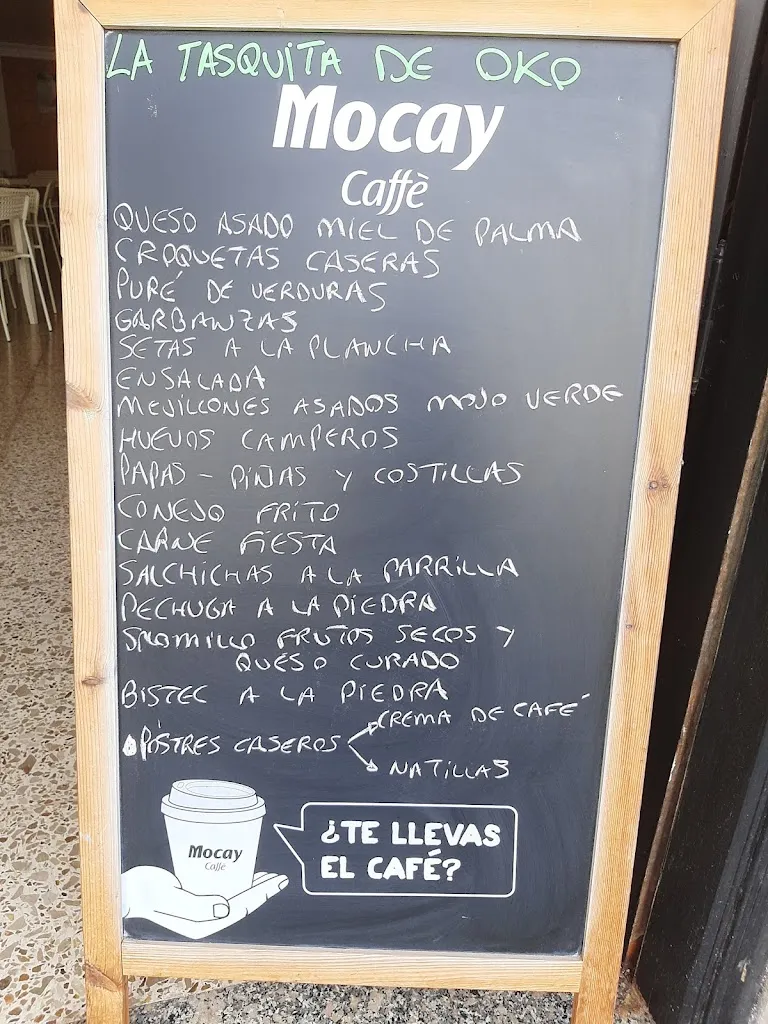 LA TASQUITA DE OKO
Mocay
Caffè
QUESO ASADO MIEL DE PALMA
CROQUETAS CASERAS
PURÉ DE VERDURAS
GARBANZAS
SETAS A LA PLANCHA
ENSALADA
MEJILLONES ASADOS MOJO VERDE
HUEVOS CAMPEROS
PAPAS - PIÑAS Y COSTILLAS
CONEJO FRITO
CARNE FIESTA
SALCHICHAS A LA PARRILLA
PECHUGA A LA PIEDRA
SOLOMILLO FRUTOS SECOS Y
QUESO CURADO
BISTEC A LA PIEDRA
CREMA DE CAFÉ
POSTRES CASEROS
NATILLAS
Mocay
Caffè
¿TE LLEVAS
EL CAFÉ?